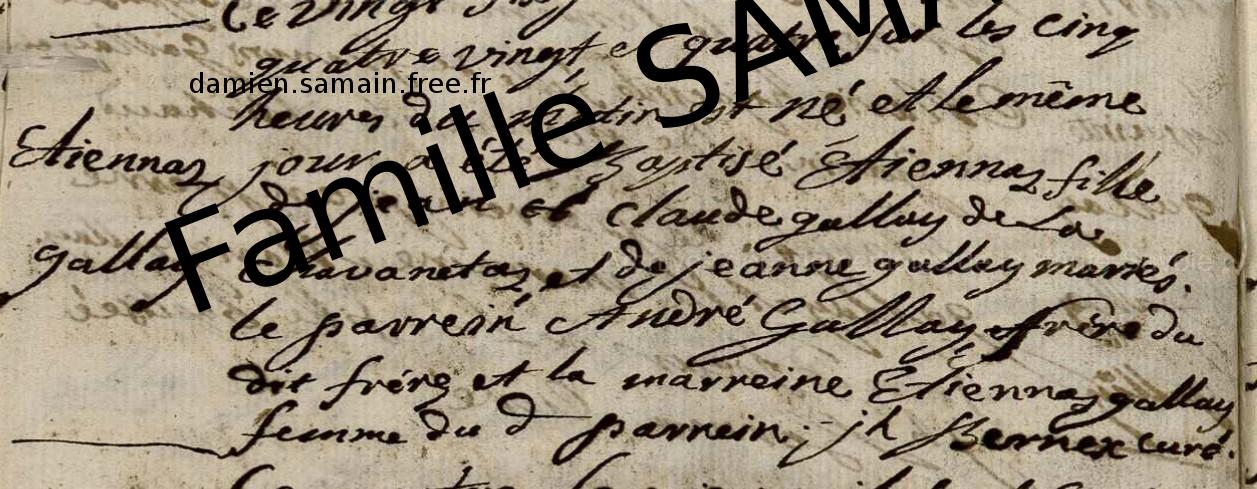 Le vingt
quatre vingt et quatre sur les cinq
damien.samain.free.fr
heures du matin est né et le même
Etiennaz jour a été Baptisé Etiennaz fille
Famille SAMA
de jean et claude gallay de La
gallay chavanetaz et de jeanne gallay mariés.
le parrein André Gallay frére du
dit frére et la marreine Etiennaz gallay
femme du d parrein. jh Bernex curé.